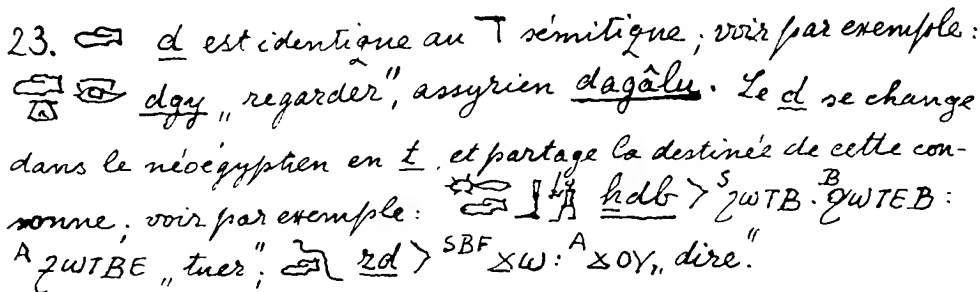 23. 𓂧 d est identique au ד sémitique; voir par exemple:
𓂧𓎼𓁹 dgy „regarder”, assyrien dagâlu. Le d se change
dans le néoégyptien en t et partage la destinée de cette con-
sonne; voir par exemple: ḫdb > S ϩⲱⲧⲃ. B ϧⲱⲧⲉⲃ:
A ϩⲱⲧⲃⲉ „tuer”; ḏd > SBF ϫⲱ: A ϫⲟⲩ „dire.”